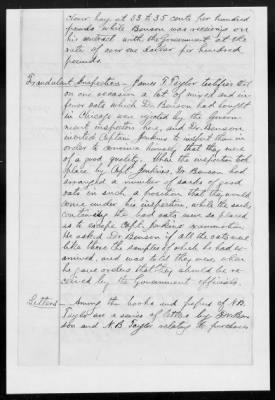 clover hay, at 33 to 35 cents per hundred
pounds while Benson was receiving on
his contract with the Government at the
rate of over one dollar per hundred
pounds.
Fraudulent Inspection — James T. Taylor testifies that
on one occasion a lot of mixed and in-
ferior oats which Dr. Benson had bought
in Chicago were rejected by the Govern-
ment inspectors here, and Dr. Benson
invited Captain Jenkins to inspect them in
order to convince himself that they were
of a good quality. When the inspection took
place by Capt. Jenkins, Dr. Benson had
arranged a number of sacks of good
oats in such a position that they would
come under his inspection, while the sacks
containing the bad oats were so placed
as to escape Capt. Jenkins examination.
He asked Dr. Benson if all the oats were
like those the samples of which he had ex-
amined, and was told they were, when
he gave orders that they should be re-
ceived by the Government officials.
Letters — Among the books and papers of N.B.
Taylor are a series of letters by Dr. Ben-
son and N.B. Taylor relating to purchases